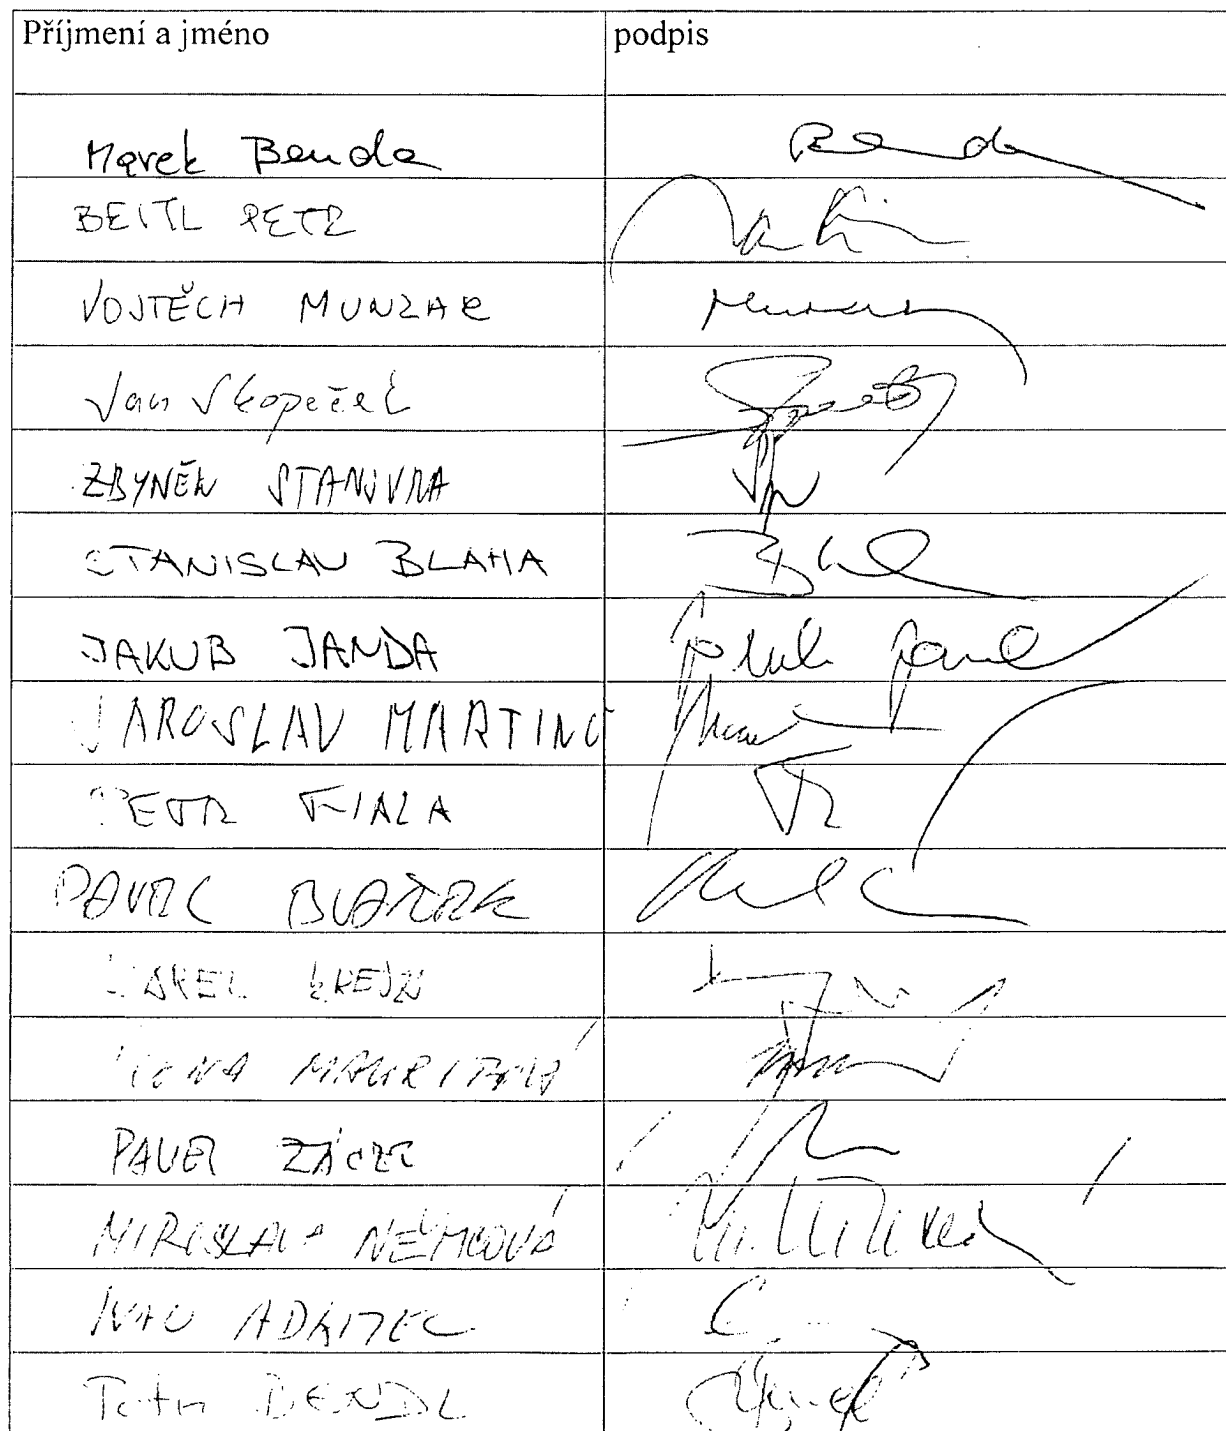 Příjmení a jméno podpis
Marek Benda Benda
BEITL PETR
VOJTĚCH MUNZAR
Jan Skopeček
ZBYNĚK STANJURA
STANISLAV BLAHA
JAKUB JANDA
JAROSLAV MARTINŮ
PETR FIALA
PAVEL BLAŽEK
KAREL KREJZA
MAURITZOVÁ
PAVEL ŽÁČEK
MIROSLAVA NĚMCOVÁ
IVAN ADAMEC
Petr BENDL